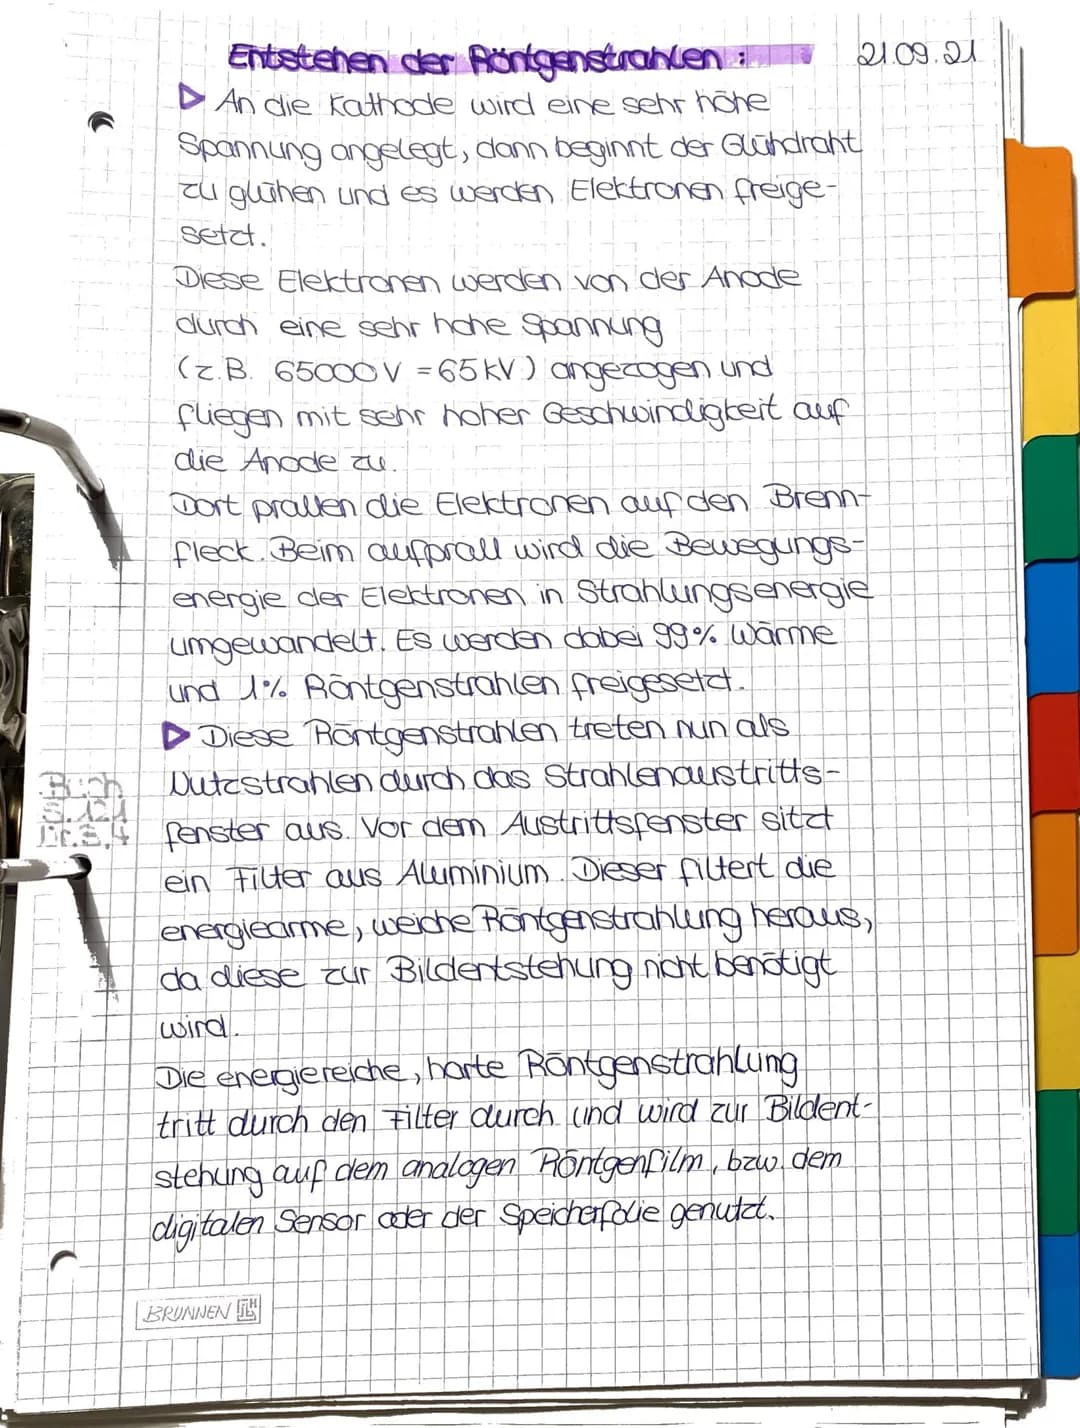 Entstehen der Röntgenstrahlen :
21.09.21
▷ An die Kathode wird eine sehr hohe
Spannung angelegt, dann beginnt der Glühdraht
zu glühen und es werden Elektronen freige-
setzt.
Diese Elektronen werden von der Anode
durch eine sehr hohe Spannung
(z.B. 65000V = 65 kV) angezogen und
fliegen mit sehr hoher Geschwindigkeit auf
die Anode zu.
Dort prallen die Elektronen auf den Brenn-
fleck. Beim aufprall wird die Bewegungs-
energie der Elektronen in Strahlungsenergie
umgewandelt. Es werden dabei 99% Wärme
und 1% Röntgenstrahlen freigesetzt.
▷ Diese Röntgenstrahlen treten nun als
Nutzstrahlen durch das Strahlenaustritts-
fenster aus. Vor dem Austrittsfenster sitzt
ein Filter aus Aluminium. Dieser filtert die
energiearme, weiche Röntgenstrahlung heraus,
da diese zur Bildentstehung nicht benötigt
wird.
Die energiereiche, harte Röntgenstrahlung
tritt durch den Filter durch und wird zur Bildent-
stehung auf dem analogen Röntgenfilm, bzw. dem
digitalen Sensor oder der Speicherfolie genutzt.
Buch
S. 121
Nr. 3,4
BRUNNEN